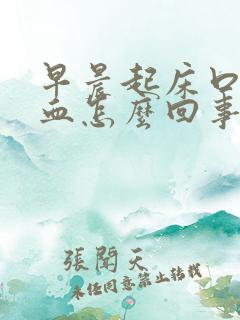 早晨起床口
血怎麼回事
張聞天
未经同意禁止转载